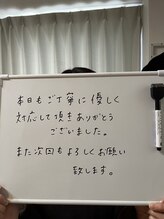 本日もご丁寧に優しく
対応して頂きありがとう
ございました。
また次回もよろしくお願い
致します。